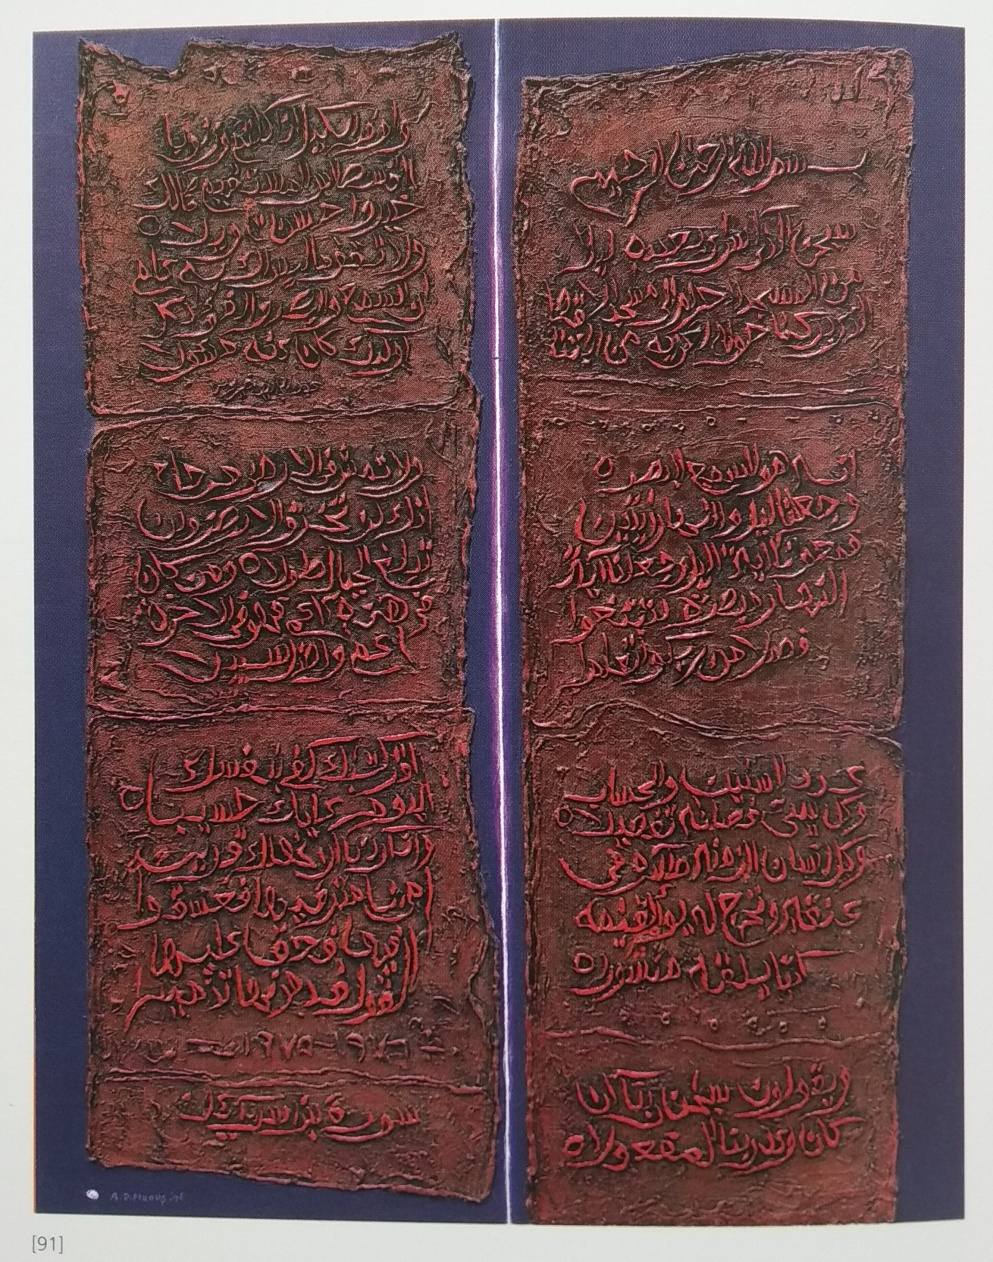 بسم الله الرحمن الرحيم
سبحن الذي اسرى بعبده ليلا
من المسجد الحرام الى المسجد الاقصا
الذي بركنا حوله لنريه من ايتنا
انه هو السميع البصير ه
وجعلنا اليل والنهار ايتين
فمحونا اية اليل وجعلنا اية
النهار مبصرة لتبتغوا
فضلا من ربكم ولتعلموا
عدد السنين والحساب
وكل شيء فصلنه تفصيلا ه
وكل انسان الزمنه طئره في
عنقه ونخرج له يوم القيمه
كتبا يلقه منشورا ه
ويقولون سبحن ربنا ان
كان وعد ربنا لمفعولا ه
واوفوا الكيل اذا كلتم وزنوا با
لقسطاس المستقيم ذلك
خير واحسن تاويلا ه
ولا تقف ما ليس لك به علم
ان السمع والبصر والفؤاد كل
اولئك كان عنه مسئولا
ولا تمش في الارض مرحا
انك لن تخرق الارض ولن
تبلغ الجبال طولا ه ومن كان
في هذه اعمى فهو في الاخرة
اعمى واضل سبيلا
اقرا كتبك كفى بنفسك
اليوم عليك حسيبا ه
واذا اردنا ان نهلك قرية
امرنا مترفيها ففسقوا
فيها فحق عليها
القول فدمرنها تدميرا
١٩٧٥-١٩٧٦
سورة بني اسرائيل
A.D. Pirous '76
[91]